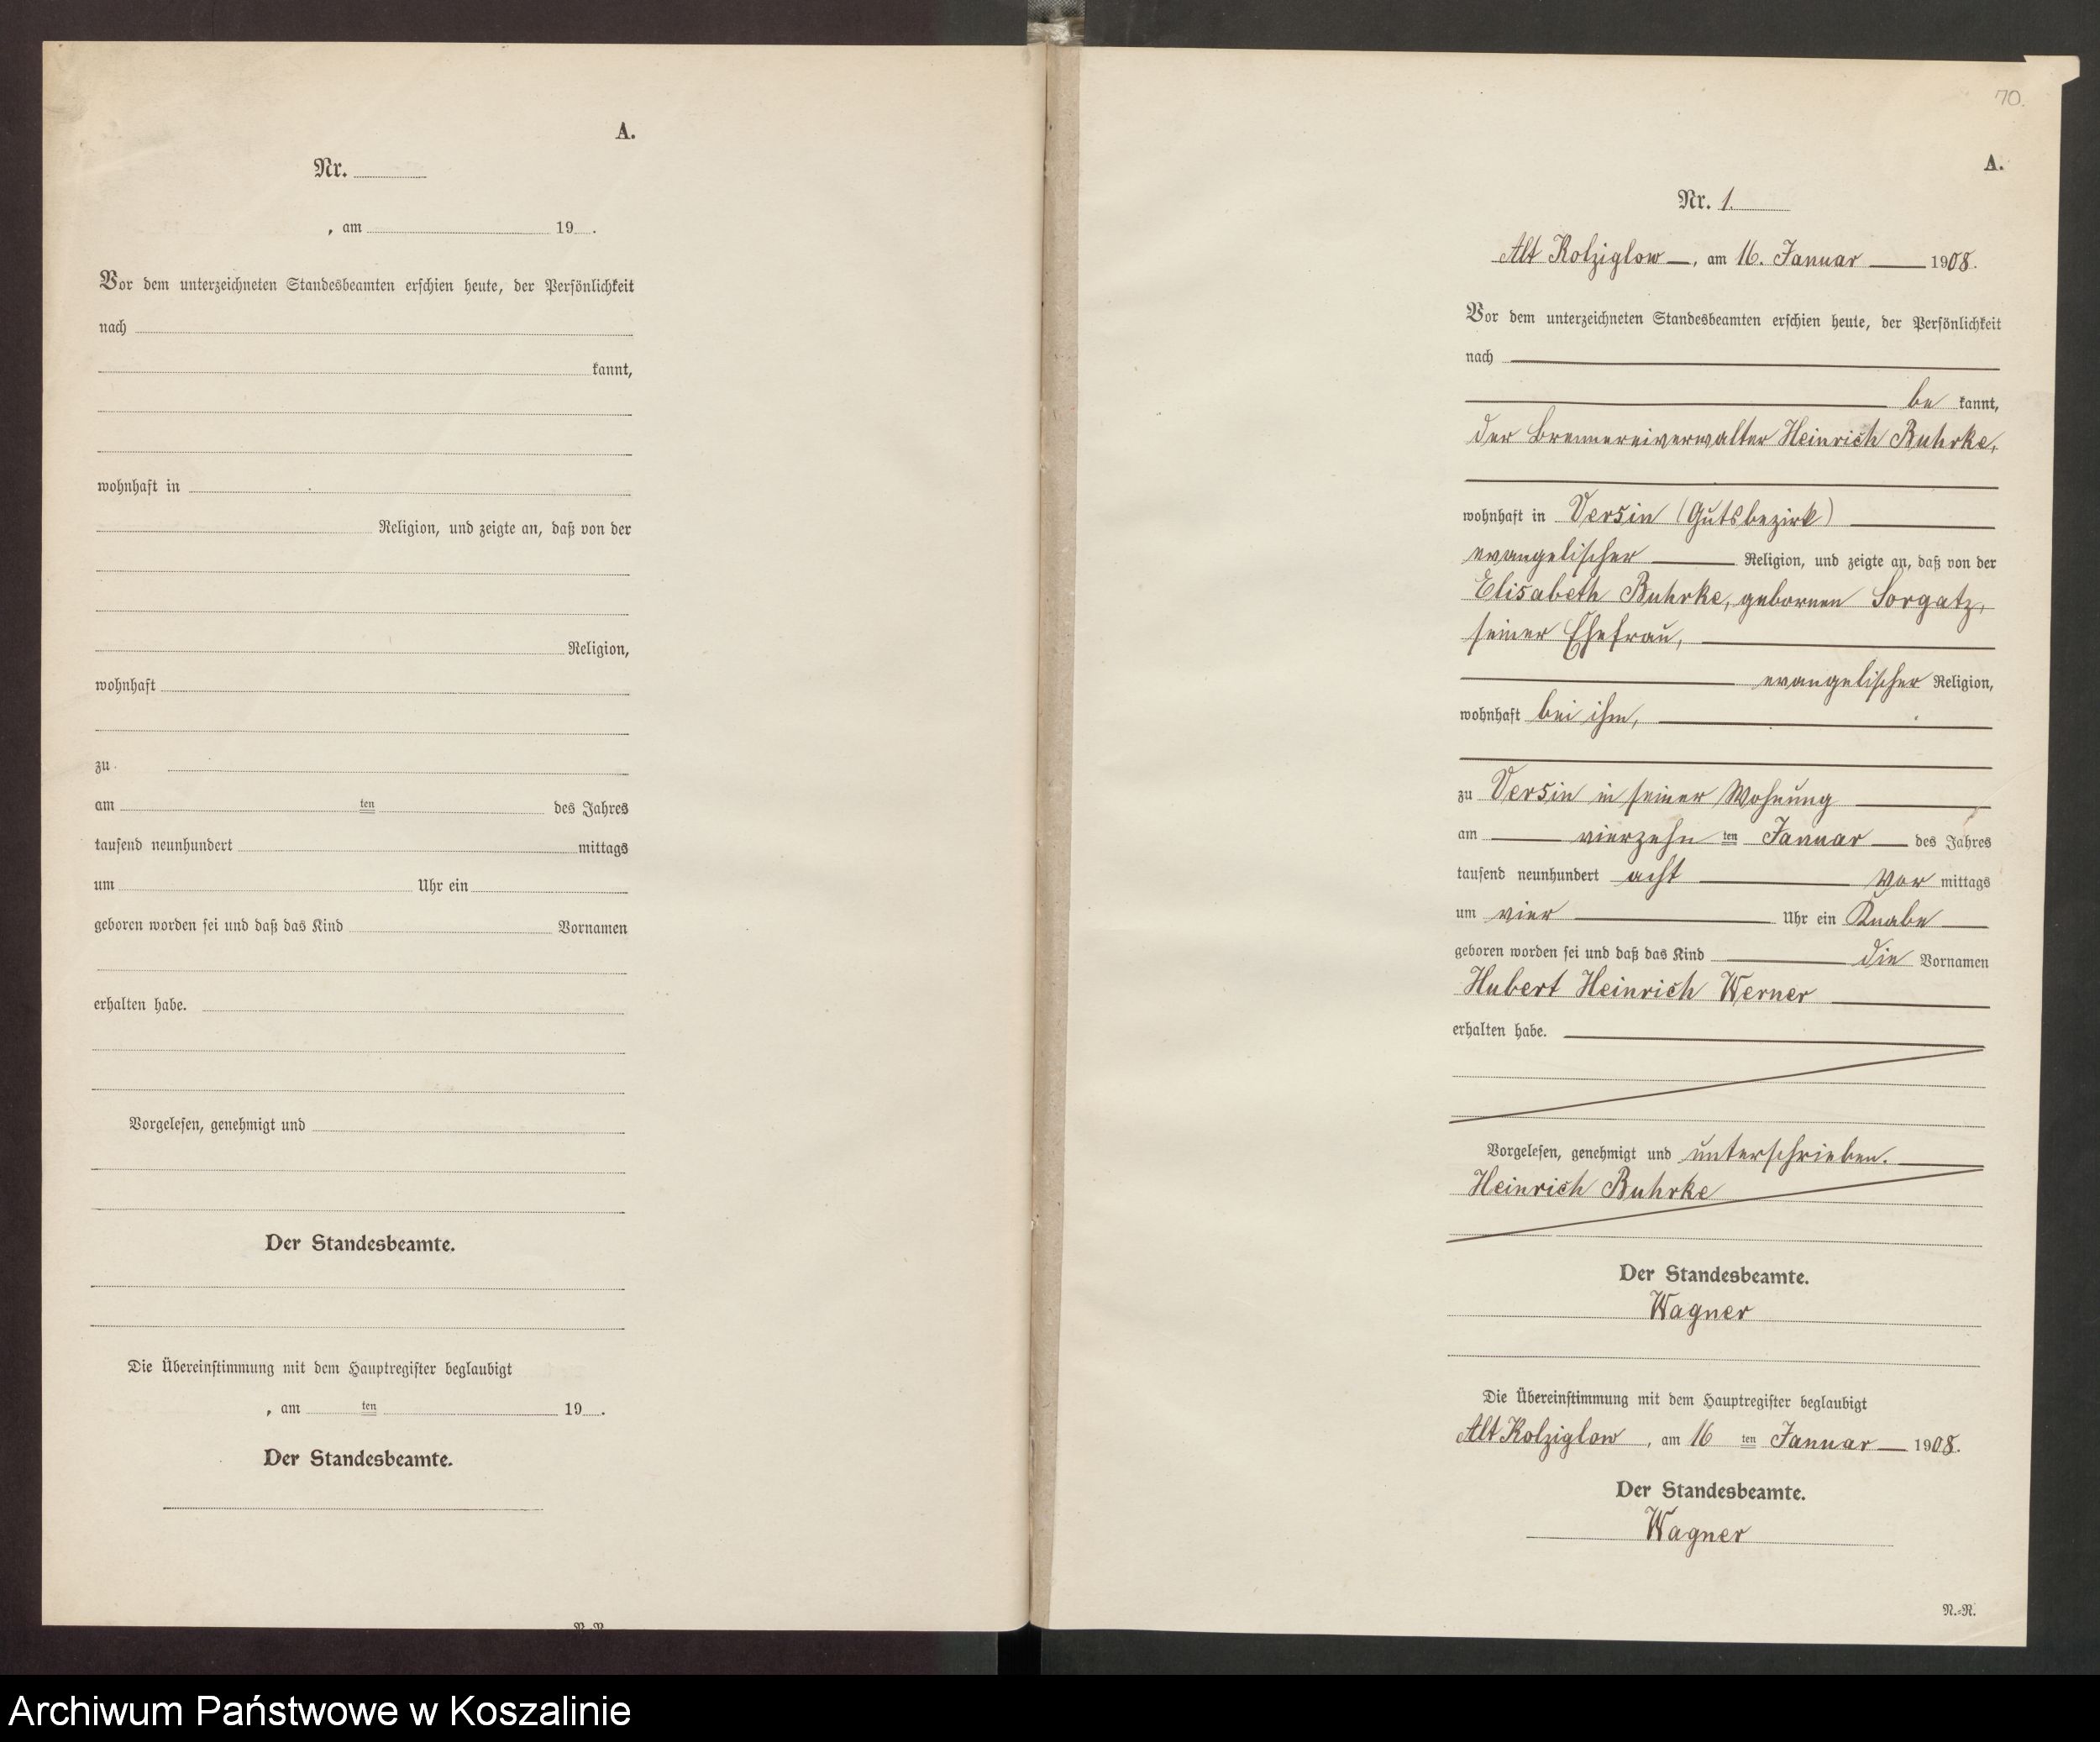 A.
Nr.
, am 19 .
Vor dem unterzeichneten Standesbeamten erschien heute, der Persönlichkeit
nach
kannt,
wohnhaft in
Religion, und zeigte an, daß von der
Religion,
wohnhaft
zu
am ten des Jahres
tausend neunhundert mittags
um Uhr ein
geboren worden sei und daß das Kind Vornamen
erhalten habe.
Vorgelesen, genehmigt und
Der Standesbeamte.
Die Übereinstimmung mit dem Hauptregister beglaubigt
, am ten 19 .
Der Standesbeamte.
70.
A.
Nr. 1.
Alt Kolziglow, am 16. Januar 1908.
Vor dem unterzeichneten Standesbeamten erschien heute, der Persönlichkeit
nach
be kannt,
der Brennereiverwalter Heinrich Buhrke,
wohnhaft in Versin (Gutsbezirk)
evangelischer Religion, und zeigte an, daß von der
Elisabeth Buhrke, gebornen Sorgatz,
seiner Ehefrau,
evangelischer Religion,
wohnhaft bei ihm,
zu Versin in seiner Wohnung
am vierzehn ten Januar des Jahres
tausend neunhundert acht Vor mittags
um vier Uhr ein Knabe
geboren worden sei und daß das Kind die Vornamen
Hubert Heinrich Werner
erhalten habe.
Vorgelesen, genehmigt und unterschrieben.
Heinrich Buhrke
Der Standesbeamte.
Wagner
Die Übereinstimmung mit dem Hauptregister beglaubigt
Alt Kolziglow, am 16 ten Januar 1908.
Der Standesbeamte.
Wagner
N.=R.
Archiwum Państwowe w Koszalinie